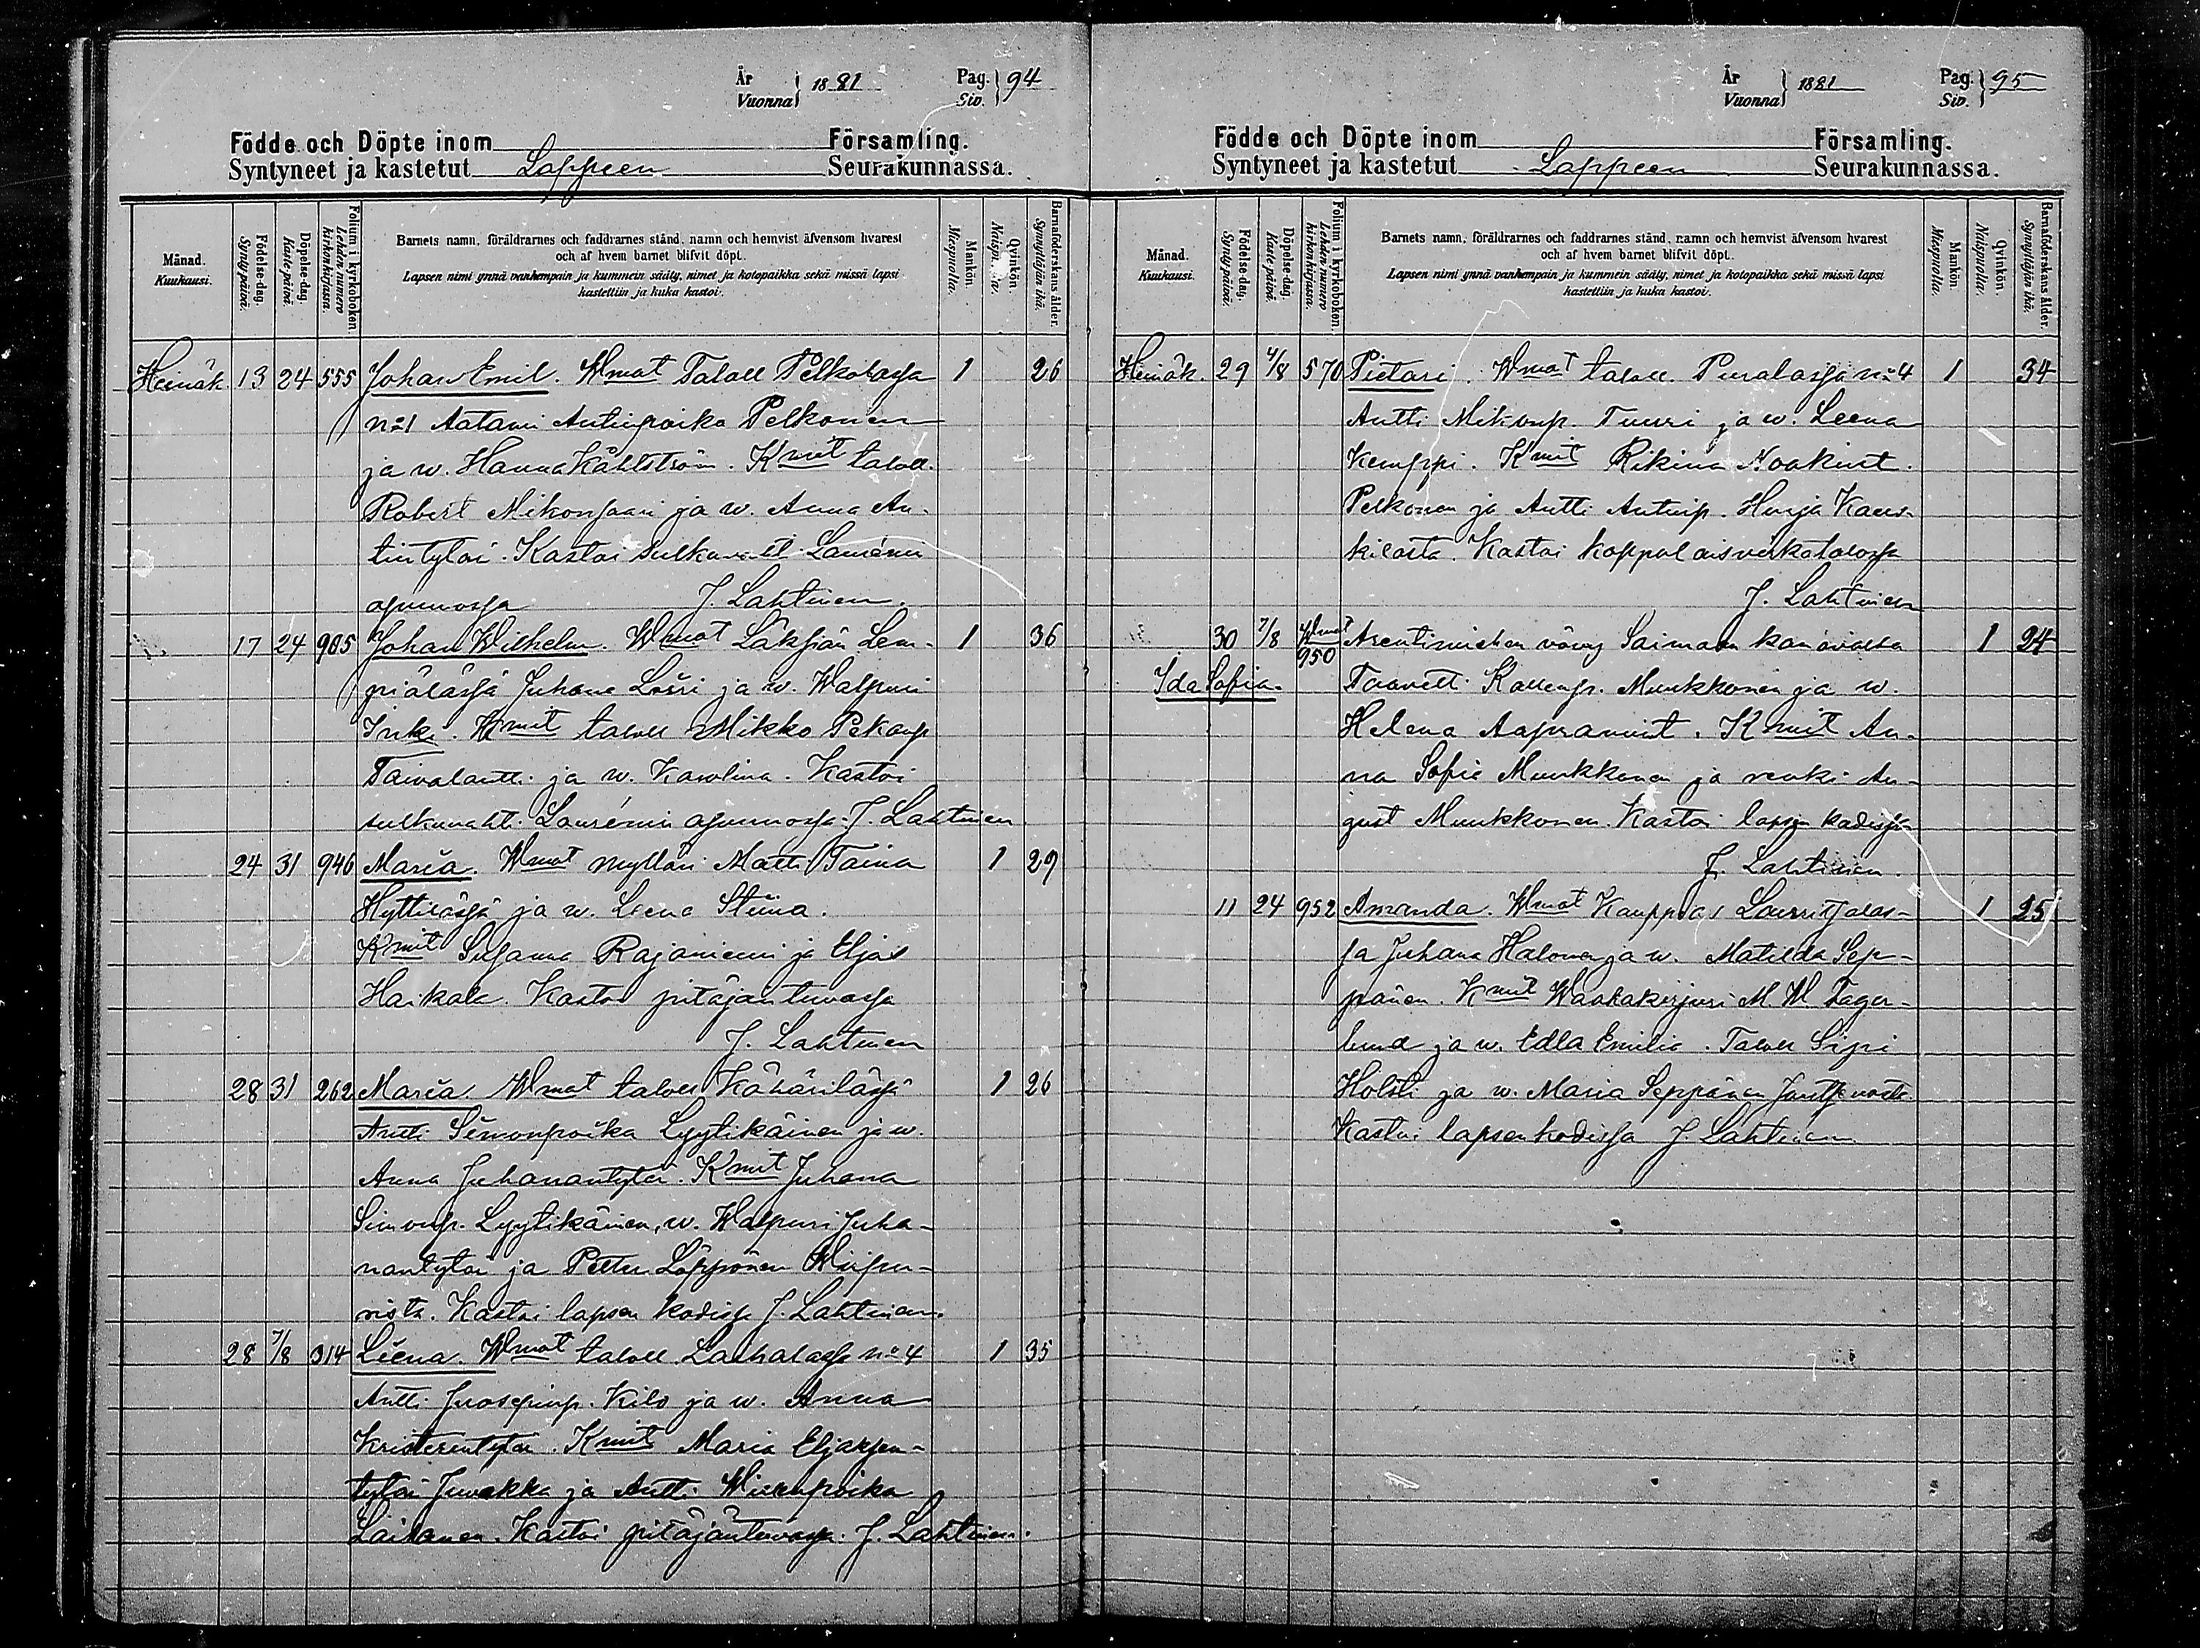 År
Vuonna
1881
Pag.
Siv.
94
Födde och Döpte inom
Församling.
Syntyneet ja kastetut Lappeen Seurakunnassa.
Månad.
Kuukausi.
Födelse-dag.
Synty-päivä.
Döpelse-dag.
Kaste-päivä.
Folium i kyrkoboken.
Lehden numero
kirkonkirjassa.
Barnets namn, föräldrarnes och faddrarnes stånd, namn och hemvist äfvensom hvarest
och af hvem barnet blifvit döpt.
Lapsen nimi ynnä vanhempain ja kummein sääty, nimet ja kotopaikka sekä missä lapsi
kastettiin ja kuka kastoi.
Mankön.
Miespuolia.
Qvinkön.
Naispuolia.
Barnaföderskans ålder.
Synnyttäjän ikä.
Heinäk. 13 24 555 Johan Emil. Wmat Taloll Pelkolassa 1 26
no 1 Aatami Antinpoika Pelkonen
ja w. Hanna Kåhlström. Kmit taloll.
Robert Mikonsaari ja w. Anna An-
tintytär. Kastoi sulkuvaht. Laurénin
asunnossa J. Lahtinen.
17 24 905 Johan Wilhelm. Wmat Läksiän Lem- 1 36
piälässä Juhana Lässi ja w. Walpuri
Inki. Kmit taloll Mikko Pekanp
Taivalantti ja w. Karolina. Kastoi
sulkuvahti Laurénin asunnossa J. Lahtinen
24 31 946 Maria. Wmat mylläri Matti Taina 1 29
Hyttilässä ja w. Leena Stiina.
Kmit Susanna Rajaniemi ja Eljas
Haikala. Kastoi pitäjäntuvassa
J. Lahtinen
28 31 262 Maria. Wmat taloll Kähärilässä 1 26
Antti Simonpoika Lyytikäinen ja w.
Anna Juhanantytär. Kmit Juhana
Simonp. Lyytikäinen, w. Walpuri Juha-
nantytär ja Petter Läppönen Wiipu-
rista. Kastoi lapsen kodissa J. Lahtinen.
28 7/8 314 Leena. Wmat taloll. Laihalassa no 4 1 35
Antti Juosepinp. Kilo ja w. Anna
Kristerintytär. Kmit Maria Eljaksen-
tytär Juvakka ja Antti
Laihanen. Kastoi pitäjäntuvassa. J. Lahtinen.
År
Vuonna
1881
Pag.
Siv.
95
Födde och Döpte inom
Församling.
Syntyneet ja kastetut Lappeen Seurakunnassa.
Månad.
Kuukausi.
Födelse-dag.
Synty-päivä.
Döpelse-dag.
Kaste-päivä.
Folium i kyrkoboken.
Lehden numero
kirkonkirjassa.
Barnets namn, föräldrarnes och faddrarnes stånd, namn och hemvist äfvensom hvarest
och af hvem barnet blifvit döpt.
Lapsen nimi ynnä vanhempain ja kummein sääty, nimet ja kotopaikka sekä missä lapsi
kastettiin ja kuka kastoi.
Mankön.
Miespuolia.
Qvinkön.
Naispuolia.
Barnaföderskans ålder.
Synnyttäjän ikä.
Heinäk. 29 4/8 570 Pietari. Wmat taloll. Peralassa no 4 1 34
Antti Mikonp. Tuuri ja w. Leena
Kemppi. Kmit Rikina Noakint.
Pelkonen ja Antti Antinp. Hurja Kaus-
kilasta. Kastoi kappalaisvirkatalossa
J. Lahtinen
30 7/8 Wmat 950 Arentimiehen vävy Saimaan kanavalta 1 24
Ida Sofia. Taavetti Kallenp. Muukkonen ja w.
Helena Aapramint. Kmit An-
na Sofia Muukkonen ja renki Au-
gust Muukkonen. Kastoi lapsen kodissa
J. Lahtinen.
11 24 952 Amanda. Wmat Kauppias Lauritsalas- 1 25
sa Juhana Halonen ja w. Matilda Sep-
pänen. Kmit Waakakirjuri M. W. Fager-
lund ja w. Edla Emilia. Taloll Sipi
Holsti ja w. Maria Seppänen
Kastoi lapsen kodissa J. Lahtinen